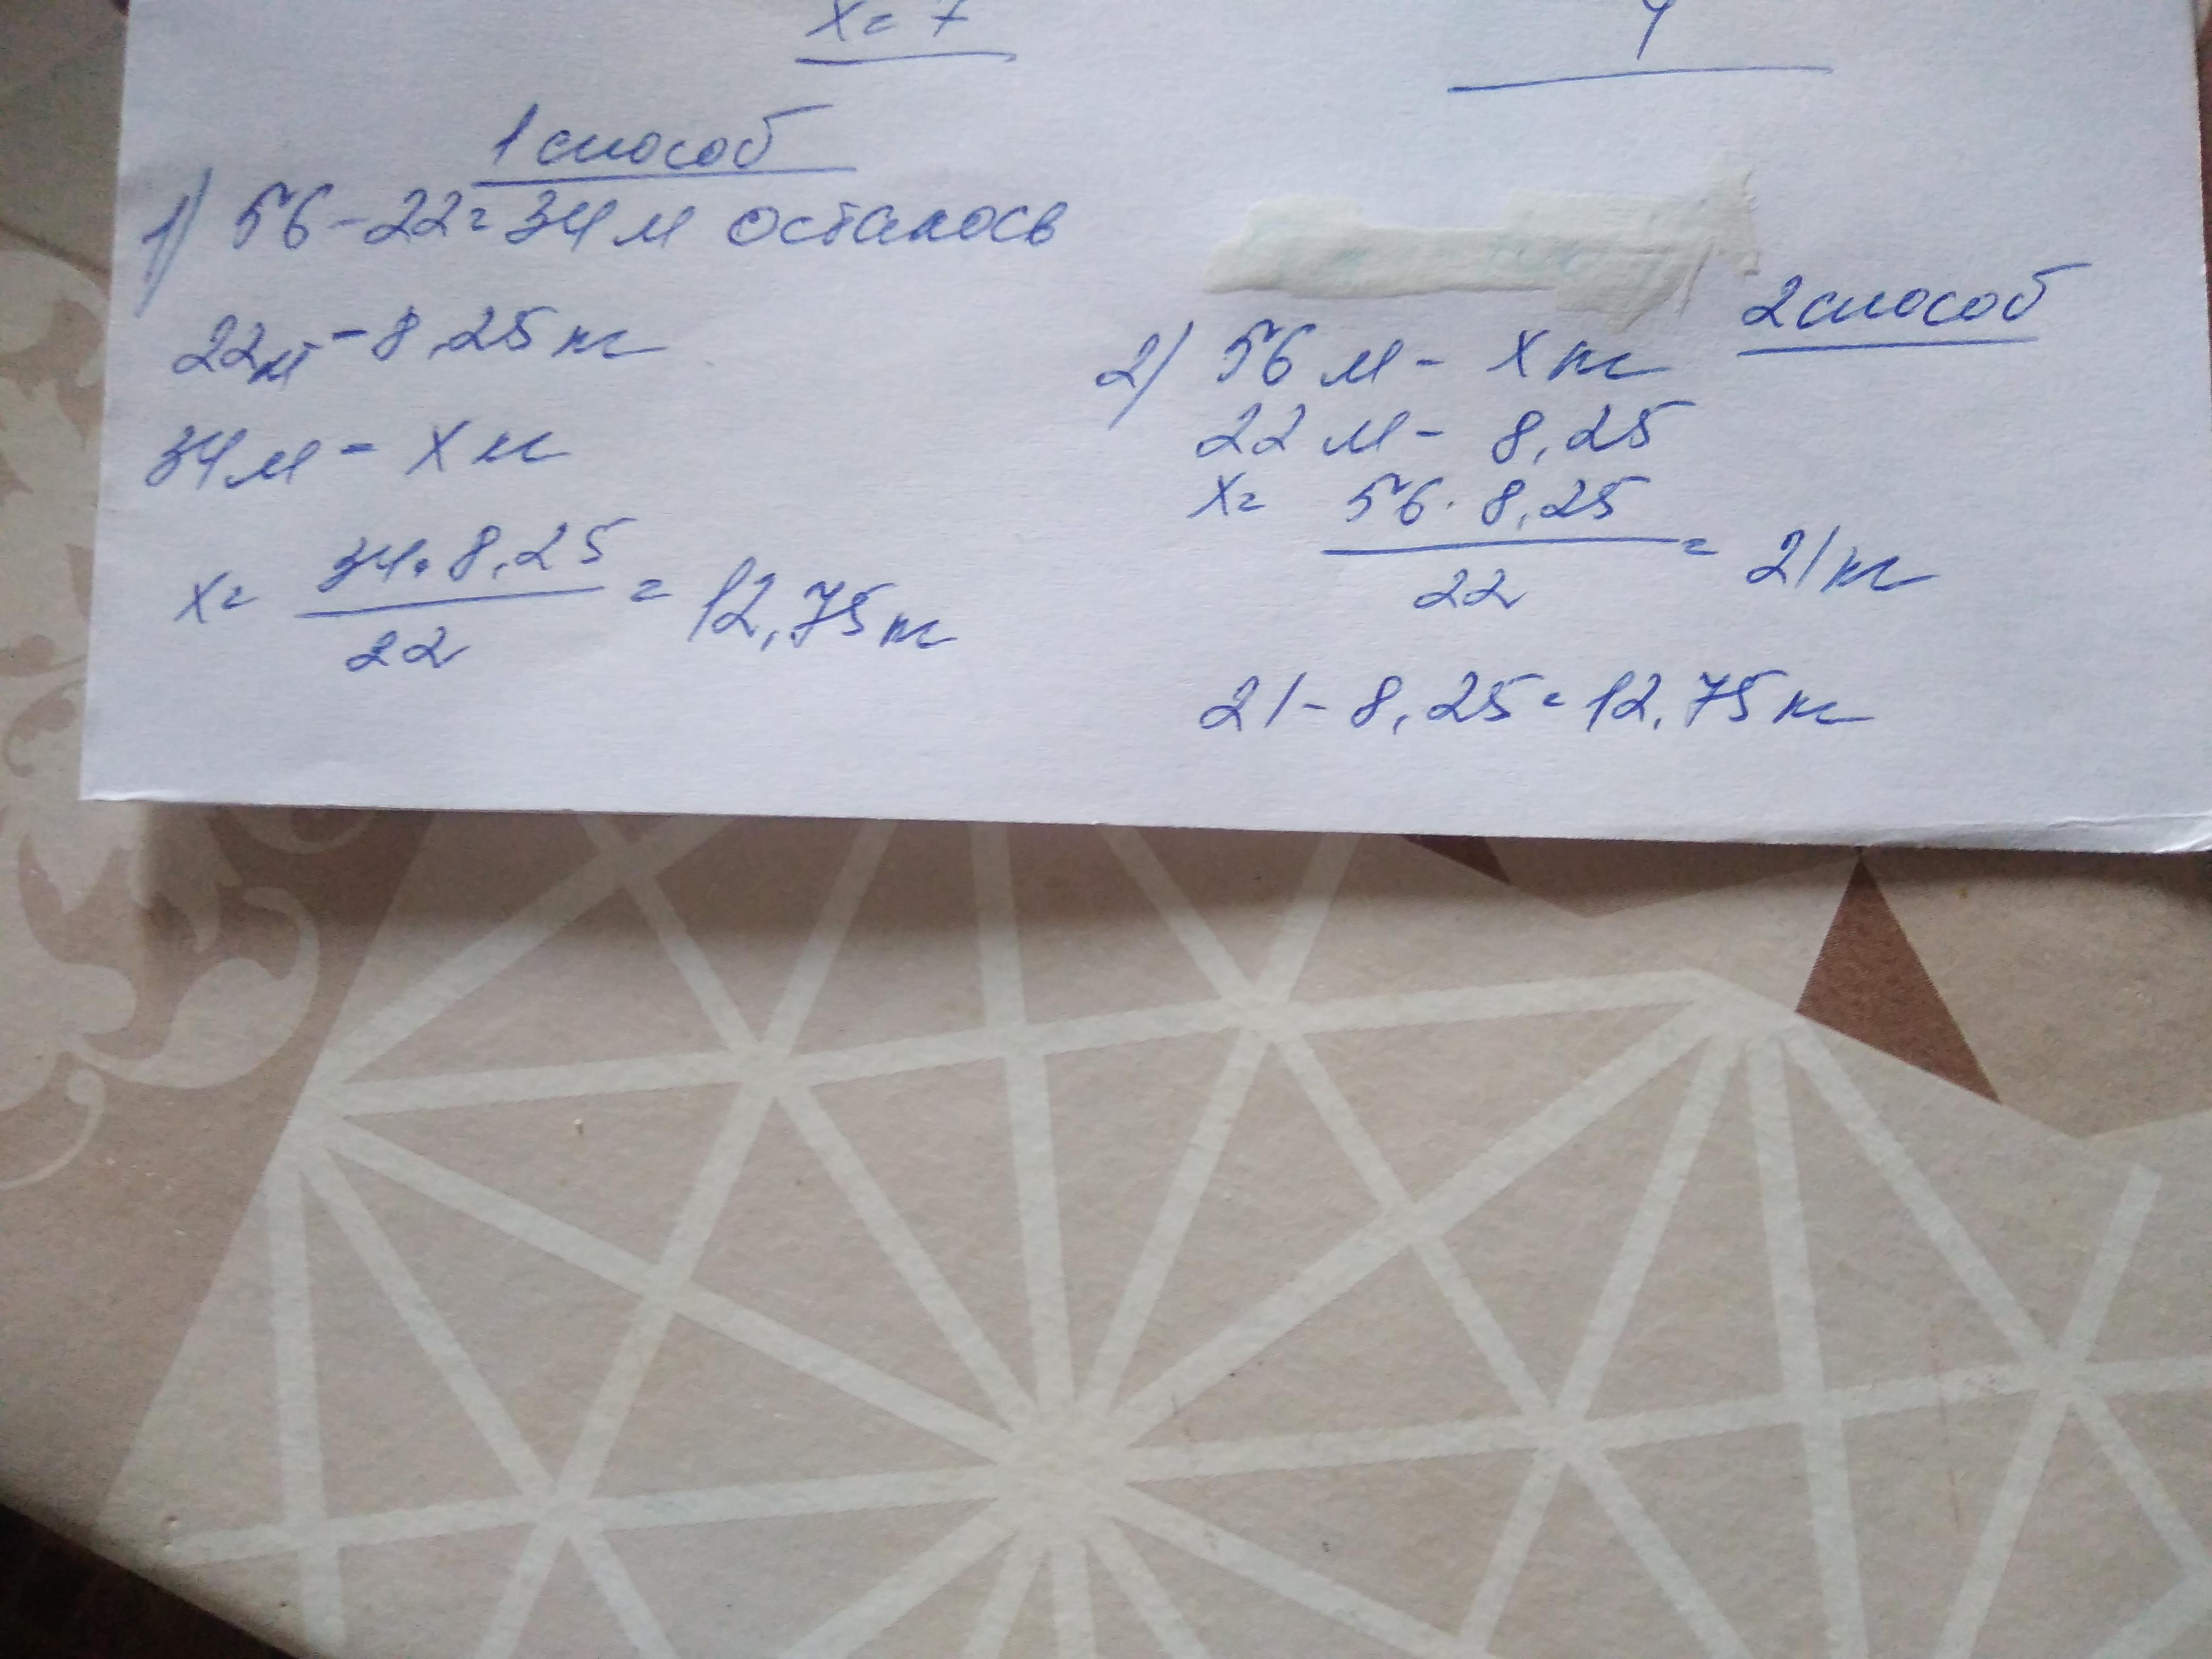 x = 7
1 способ
1) 56 - 22 = 34 м осталось
22 м - 8,25 кг
34 м - x кг
x = 34 · 8,25 / 22 = 12,75 кг
2 способ
2) 56 м - x кг
22 м - 8,25
x = 56 · 8,25 / 22 = 21 кг
21 - 8,25 = 12,75 кг